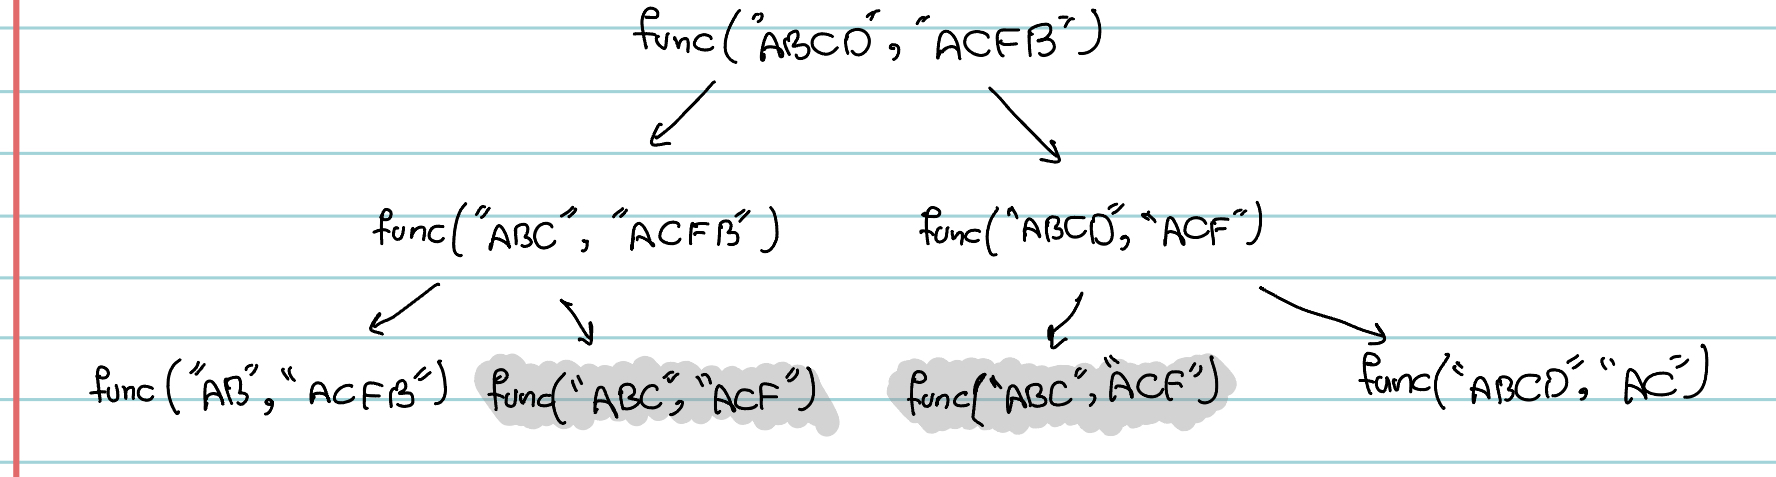 func("ABCD", "ACFB")
func("ABC", "ACFB") func("ABCD", "ACF")
func("AB", "ACFB") func("ABC", "ACF") func("ABC", "ACF") func("ABCD", "AC")